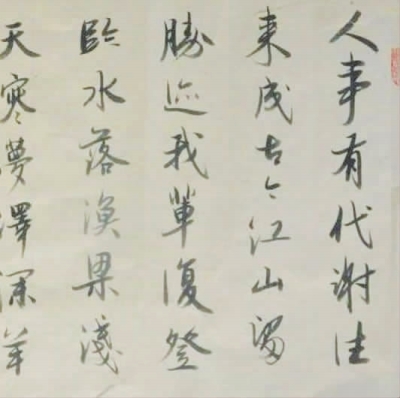 人事有代謝往
來成古今江山留
勝迹我輩復登
臨水落漁梁淺
天寒夢澤深羊